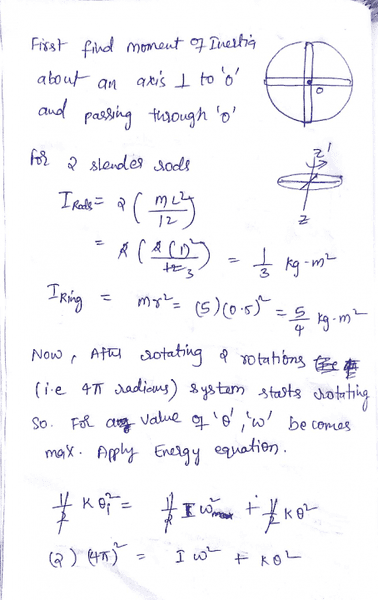 First find moment of Inertia
about an axis ⊥ to 'o'
and passing through 'o'
O
for 2 slender rods
z'
z
I_Rods = 2 (mL²/12)
= 2 (4(1)²/12 3) = 1/3 kg-m²
I_Ring = mr² = (5)(0.5)² = 5/4 kg-m²
Now, After rotating 2 rotations
(i.e 4π radians) system starts rotating
So. For value of 'θ', 'ω' becomes
max. Apply Energy equation.
1/2 K θ_i² = 1/2 I ω²_max + 1/2 K θ²
(2) (4π)² = I ω² + K θ²